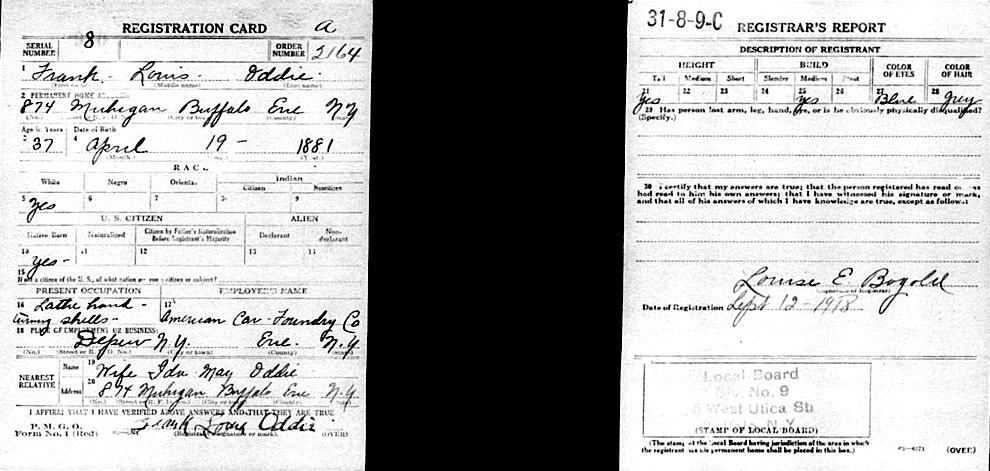 REGISTRATION CARD A
SERIAL NUMBER 8 ORDER NUMBER 2164
1 Frank - Louis - Oddie -
(First name) (Middle name) (Last name)
2 PERMANENT HOME ADDRESS
874 Michigan Buffalo Erie NY
(No.) (City or town) (County) (State)
Age in Years Date of Birth
3 37 4 April 19 - 1881
(Month.) (Year.)
RACE
White Negro Oriental Indian
Citizen Noncitizen
5 Yes 6 7 8 9
U. S. CITIZEN ALIEN
Native Born Naturalized Citizen by Father's Naturalization Before Registrant's Majority Declarant Non-declarant
10 Yes - 11 12 13 14
15 If not a citizen of the U. S., of what nation are you a citizen or subject?
PRESENT OCCUPATION EMPLOYER'S NAME
16 Lathe hand - 17
turning shells - American Car - Foundry Co
18 PLACE OF EMPLOYMENT OR BUSINESS:
Depew N.Y. Erie. N.Y
(No.) (Street or R. F. D. No.) (City or town) (County) (State)
NEAREST RELATIVE Name 19 Wife Ida May Oddie
Address 20 874 Michigan Buffalo Erie N.Y.
(No.) (Street or R. F. D. No.) (City or town) (County) (State)
I AFFIRM THAT I HAVE VERIFIED ABOVE ANSWERS AND THAT THEY ARE TRUE
P. M. G. O.
Form No. 1 (Red) Frank Louis Oddie
(Registrant's signature or mark) (OVER)
31-8-9-C REGISTRAR'S REPORT
DESCRIPTION OF REGISTRANT
HEIGHT BUILD COLOR OF EYES COLOR OF HAIR
Tall Medium Short Slender Medium Stout
21 Yes 22 23 24 25 yes 26 27 Blue 28 Grey
29 Has person lost arm, leg, hand, eye, or is he obviously physically disqualified?
(Specify.)
30 I certify that my answers are true; that the person registered has read or has
had read to him his own answers; that I have witnessed his signature or mark,
and that all of his answers of which I have knowledge are true, except as follows:
Louise E. Bogold
(Signature of Registrar)
Date of Registration Sept 12 - 1918
Local Board
Div. No. 9
West Utica St.
N.Y.
(STAMP OF LOCAL BOARD)
(The stamp of the Local Board having jurisdiction of the area in which
the registrant has his permanent home shall be placed in this box.)
(OVER)